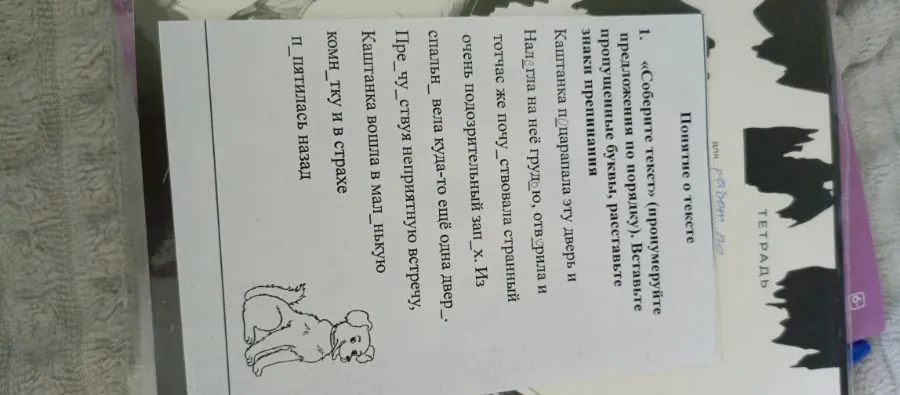 ТЕТРАДЬ
для работ по
Понятие о тексте
1. «Соберите текст» (пронумеруйте
предложения по порядку). Вставьте
пропущенные буквы, расставьте
знаки препинания
Каштанка поцарапала эту дверь и
Налегла на неё грудью, отворила и
тотчас же почу_ствовала странный
очень подозрительный зап_х. Из
спальн_ вела куда-то ещё одна двер_.
Пре_чу_ствуя неприятную встречу,
Каштанка вошла в мал_нькую
комн_тку и в страхе
п_пятилась назад
6